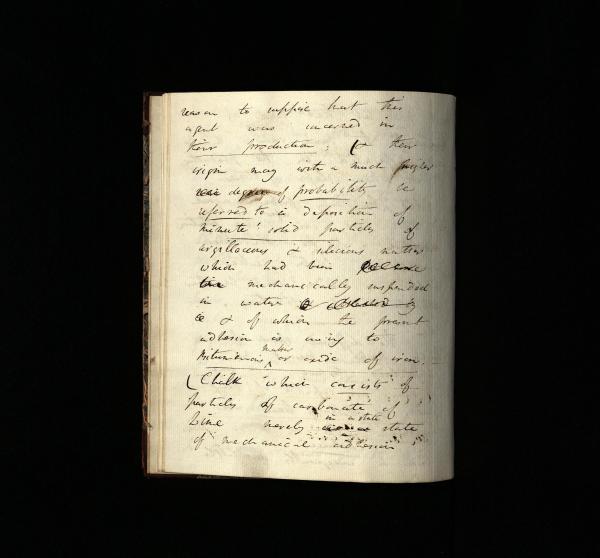 reason to suppose that this
agent was concerned in
their production; & their
origin may with a much higher
degree of probability be
referred to a deposition of
minute solid particles of
argillaceous & silicious matter
which had been
mechanically suspended
in water
& of which the present
adhesion is owing to
bituminous matter or oxide of iron.
(Chalk which consists of
particles of carbonate of
lime merely in a state
of mechanical adhesion